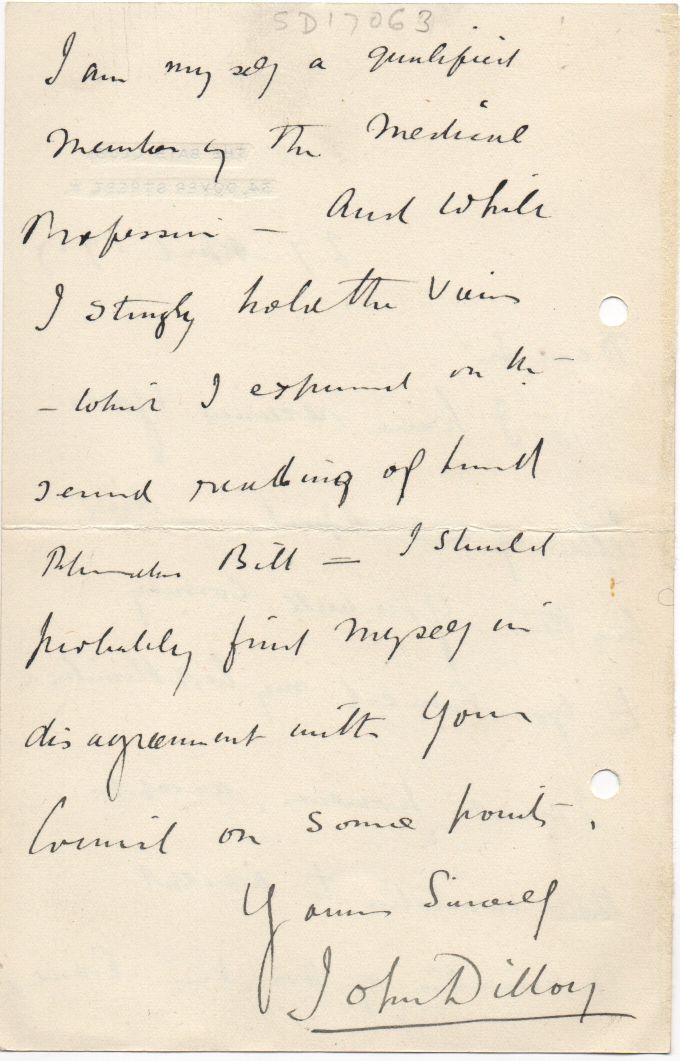 SD17063
I am myself a qualified
member of the Medical
Profession — And while
I stongly hold the Views
— which I expressed on the —
second reading of
Bill = I should
probably find myself in
disagreement with your
Council on some points.
Yours Sincerely
John Dillon